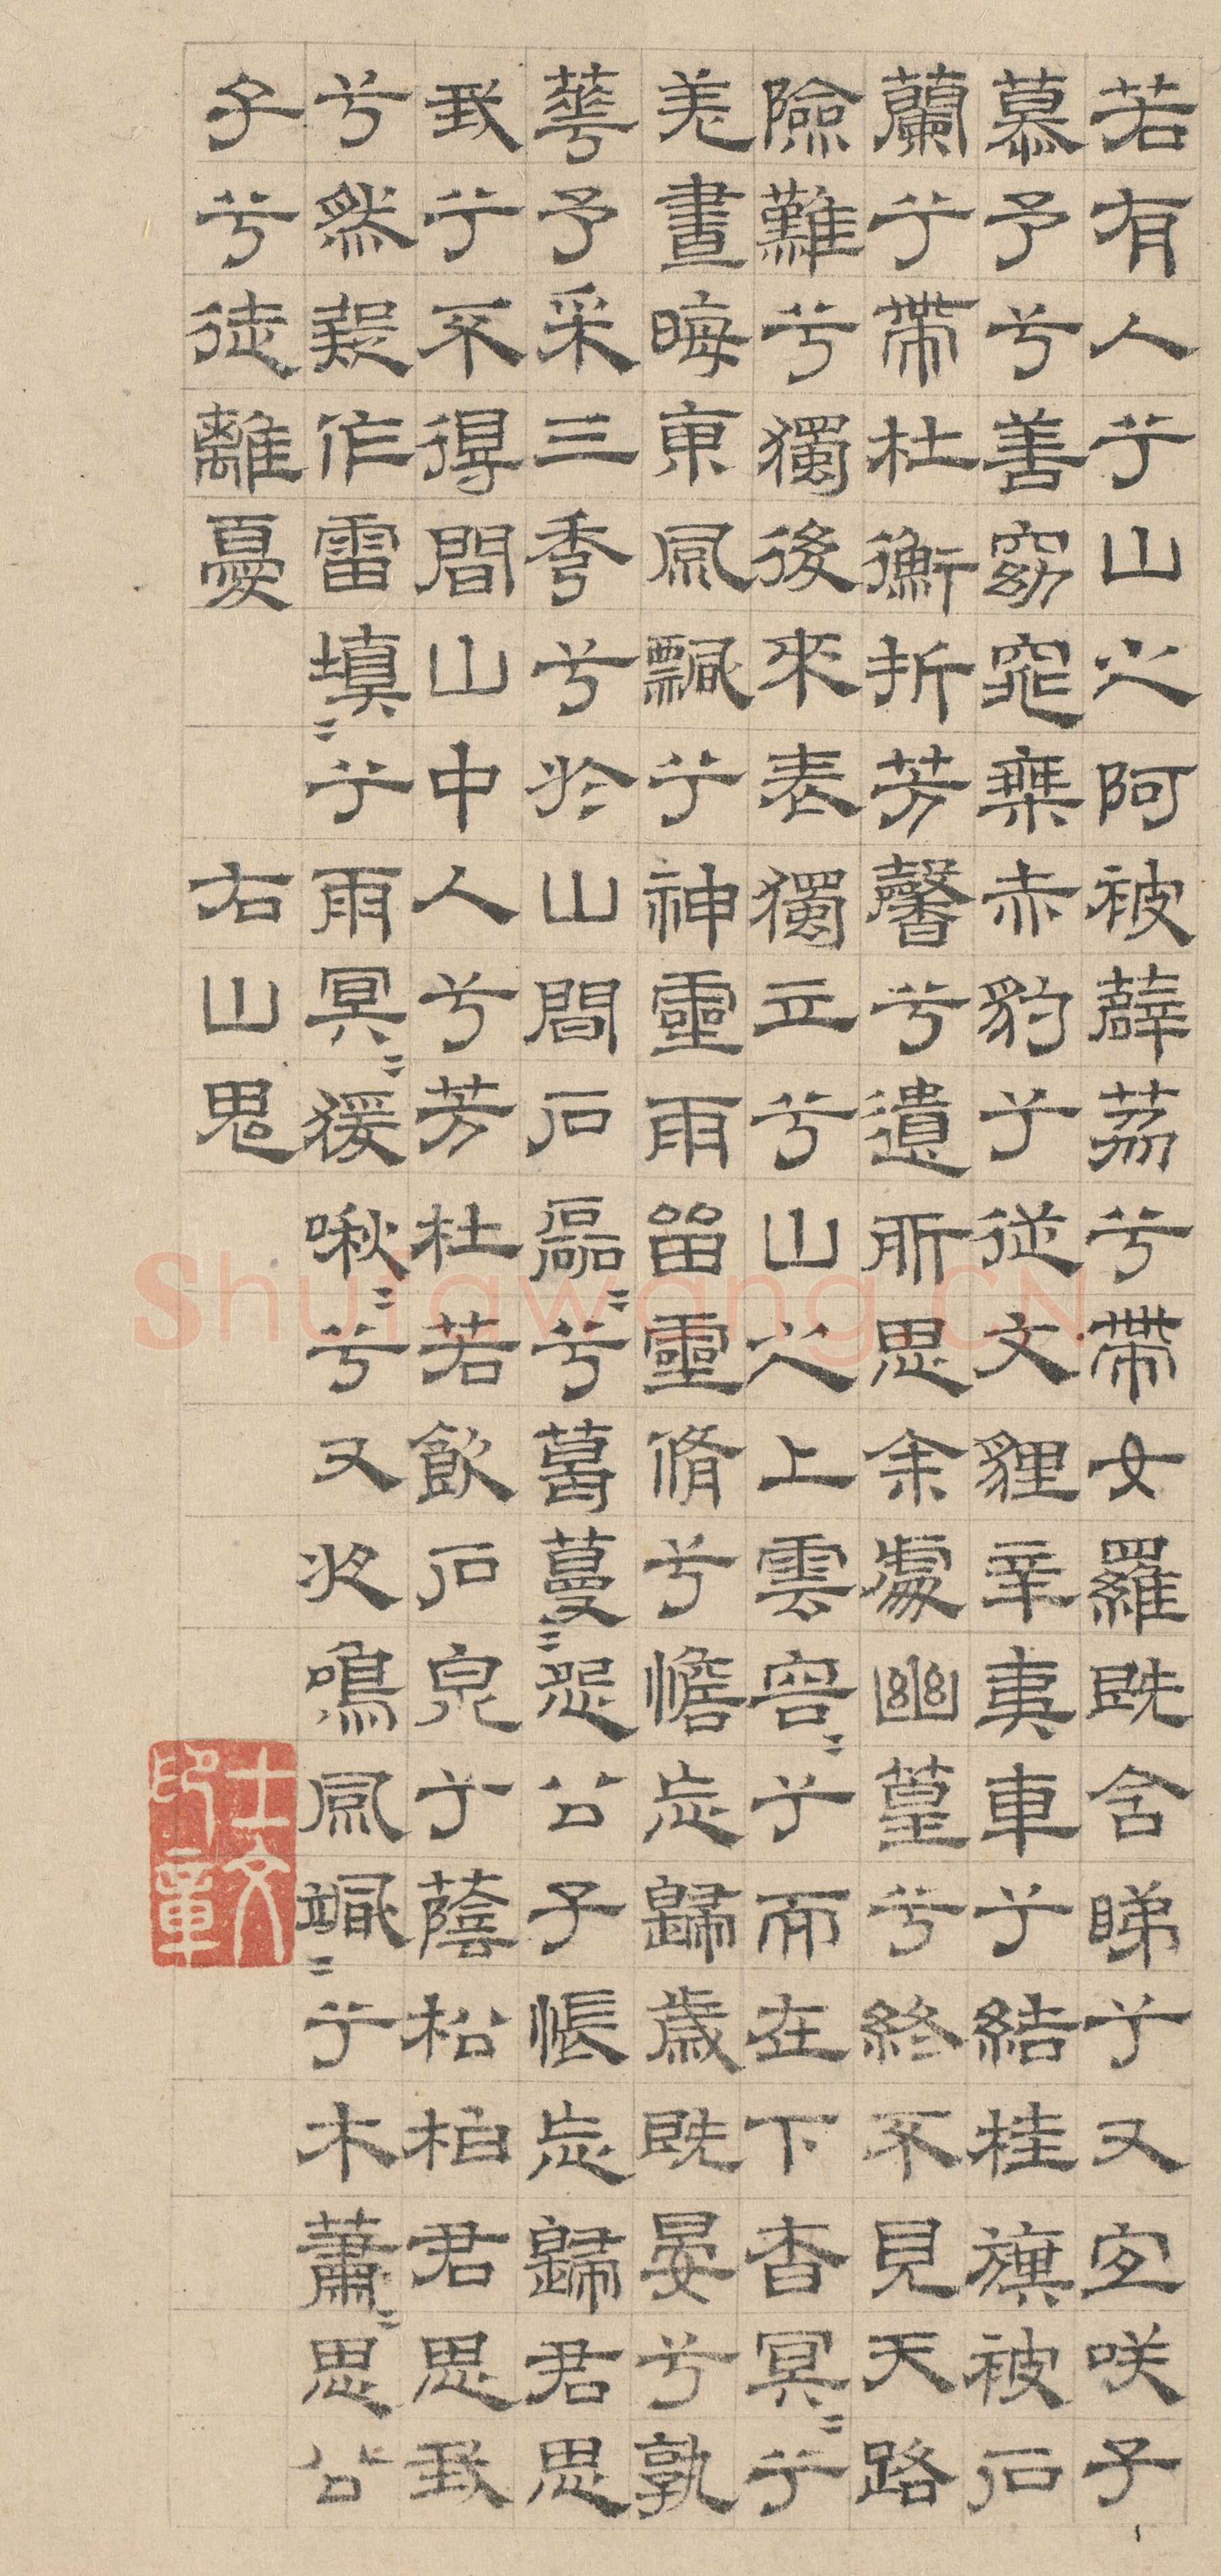 若有人兮山之阿被薜荔兮帶女羅既含睇兮又宜咲子
慕予兮善窈窕椉赤豹兮從文貍辛夷車兮結桂旗被石
蘭兮帶杜衡折芳馨兮遺所思余處幽篁兮終不見天路
險難兮獨後來表獨立兮山之上雲容〻兮而在下杳冥〻兮
羌晝晦東風飄兮神靈雨畱靈脩兮憺忘歸歲既晏兮孰
華予采三秀兮於山間石磊〻兮葛蔓〻怨公子悵忘歸君思
我兮不得間山中人兮芳杜若飲石泉兮蔭松柏君思我
兮然疑作雷填〻兮雨冥〻猨啾〻兮又夜鳴風颯〻兮木蕭〻思公
子兮徒離憂 右山鬼
士文印章
Shufawang.CN